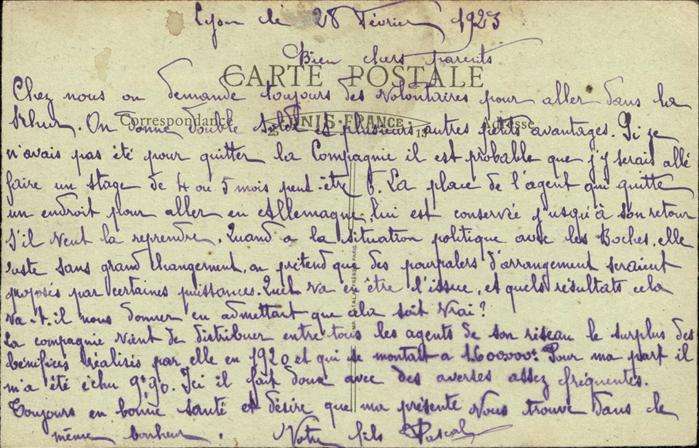 Lyon le 28 Février 1923
Bien chers parents
CARTE POSTALE
Chez nous on demande toujours des Volontaires pour aller dans la
Rhur. On donne double solde et plusieurs autres petits avantages. Si je
Correspondance UNIS-FRANCE Adresse
n'avais pas été pour quitter la Compagnie il est probable que j'y serais allé
faire un stage de 4 ou 5 mois peut-être 6. La place de l'agent qui quitte
un endroit pour aller en Allemagne, lui est conservée jusqu'à son retour
s'il veut la reprendre. Quand a la situation politique avec les Boches, elle
reste sans grand changement, on prétend que des pourpalers d'arrangement seraient
proposés par certaines puissances. Quel va en être l'issue, et quels résultats cela
va-t-il nous donner en admettant que cela soit Vrai?
La compagnie vient de distribuer entre tous les agents de son réseau le surplus des
bénéfices réalisés par elle en 1920 et qui se montait a Pour ma part il
m'a été échu 9f90. Ici il fait doux avec des averses assez fréquentes.
Toujours en bonne santé et désire que ma présente Vous trouve dans le
même bonheur. Votre fils Pascal